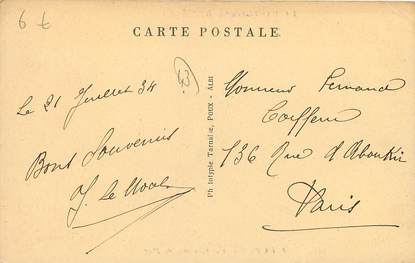 6 €
CARTE POSTALE
43
Le 21 Juillet 34
Bons Souvenirs
Ph intypie Tarnaise, POUX - ALBI
Monsieur Fernand
Coiffeur
136 Rue d'Aboukir
Paris